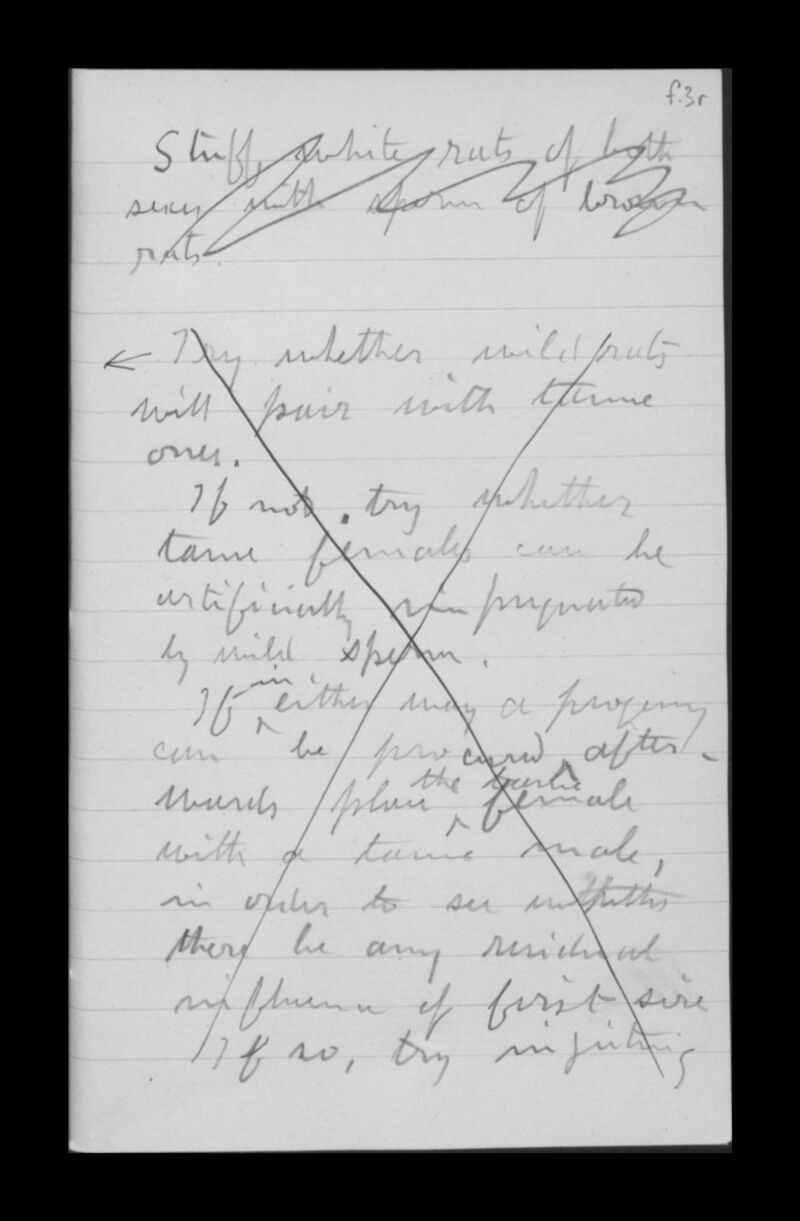 f.3r
Stuff, white rats of both
sexes with sperm of brown
rats.
← Try whether wild rats
will pair with tame
ones.
If not, try whether
tame females can be
artificially impregnated
by wild sperm.
in
If ‸ either way a progeny
can be procured ‸ after-
the
wards place ‸ female
with a tame male,
in order to see whether
there be any residual
influence of first sire
If so, try injecting